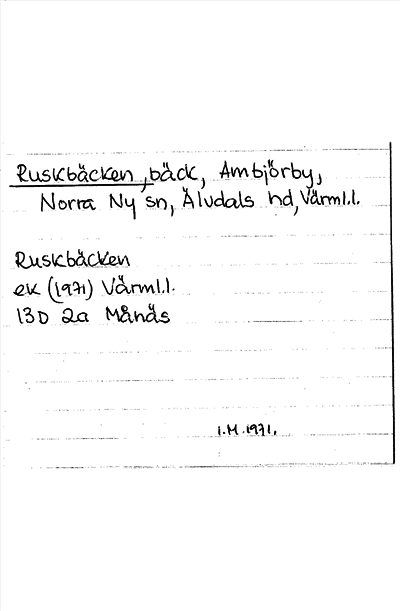 Ruskbäcken, bäck, Ambjörby,
Norra Ny sn, Älvdals hd, Värml.l.
Ruskbäcken
ek (1971) Värml.l.
13D 2a Månäs
I.M. 1971.